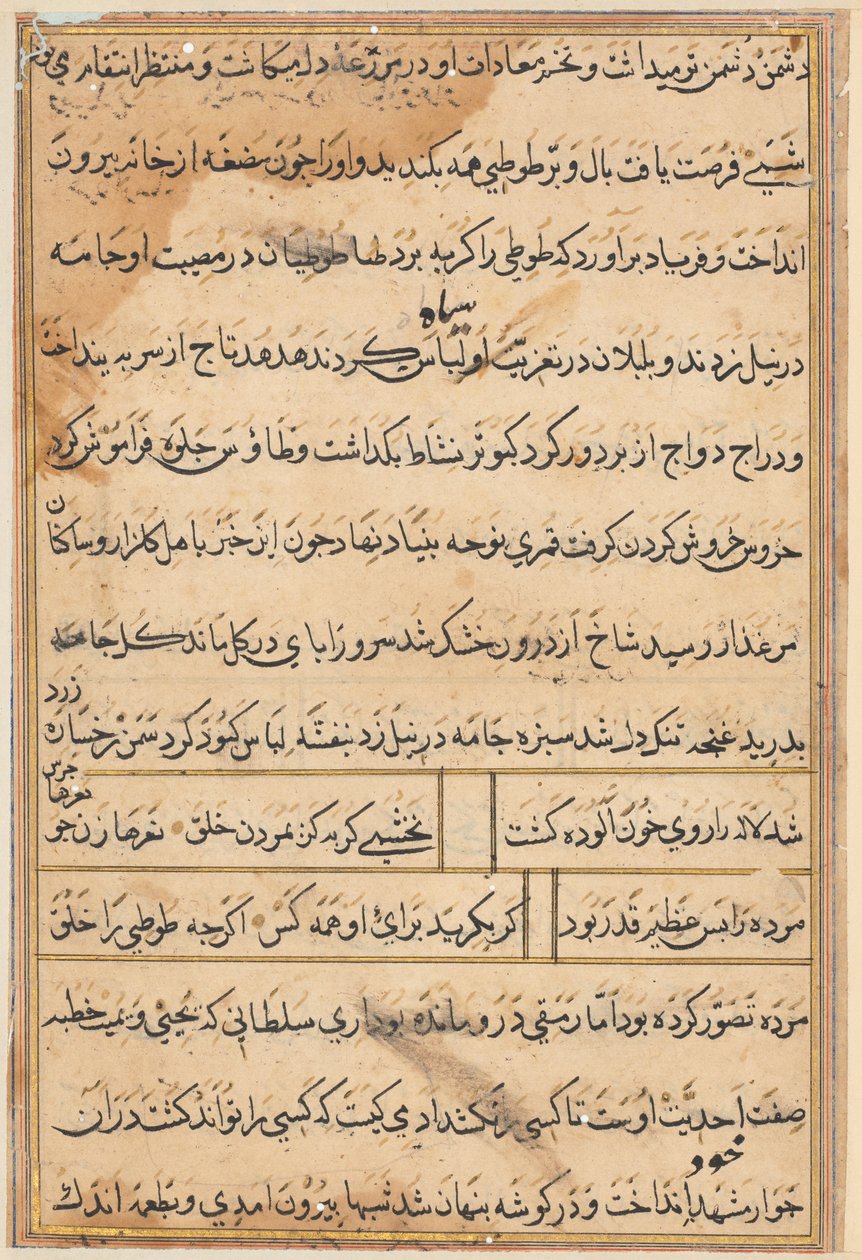 دشمن دشمن تو میداشت و تخم معادات او در مزرعهٔ دل میکاشت و منتظر انتقام می بود
شبی فرصت یافت بال و پر طوطی همه بکندید و او را چون مضغه از خانه بیرون
انداخت و فریاد برآورد که طوطی را گربه برد طوطیان در مصیبت او جامه
در نیل زدند و بلبلان در تعزیت او لباس سیاه کردند هدهد تاج از سر بینداخت
و دراج دواج از بر دور کرد کبوتر نشاط بکداشت و طاؤس جلوه فراموش کرد
خروس خروش کردن کرفت قمری نوحه بنیاد نهاد جون این خبر باهل کلزار و ساکنان
مرغزار رسید شاخ از درون خشک شد سرو را پای در کل ماند کل جامه
بدرید غنچه تنک دل شد سبزه جامه در نیل زد بنفشه لباس کبود کرد سمن رخساره زرد
شد لاله را روی خون آلوده کشت نخشبی کریه کن بمردن خلق نعرها زن جو جرس نعرها
مرده را بس عظیم قدر بود کر بکرید برای او همه کس اکرچه طوطی را خلق
مرده تصور کرده بود اما رمقی درو مانده بود اری سلطانی که یحیی و یمیت خطبه
صفت احدیت اوست تا کسی را نکشد ادمی کیست که کسی را تواند کشت در ان
جوار مشهد خود انداخت و در کوشه بنهان شد شبها بیرون امدی و بطعمه اندک